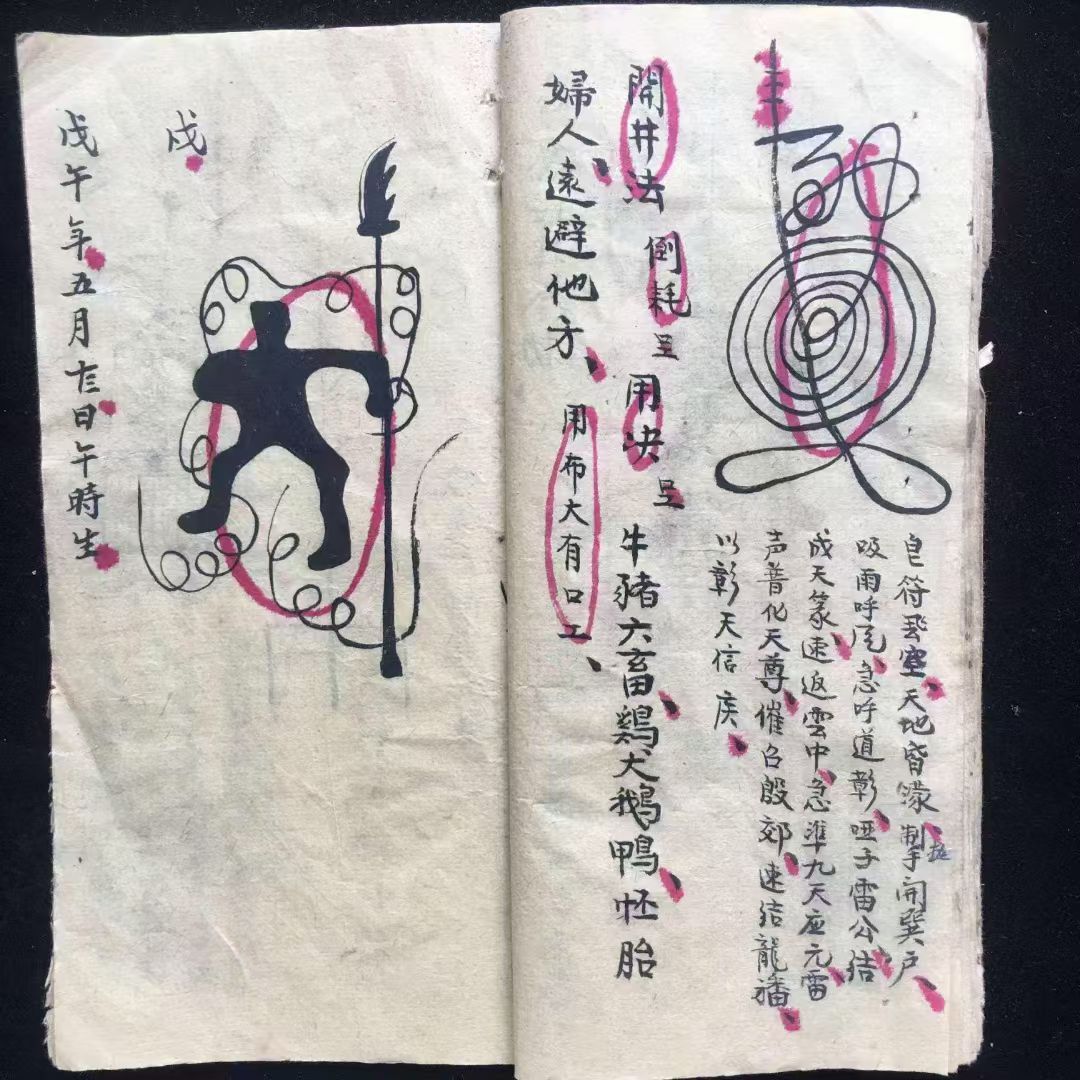 皂符飛空天地皆濛掣开巽户
吸雨呼風急呼道彰哑子雷公结
成天篆速返雲中急準九天应元雷
声普化天尊催召殷郊速结龍旛
以彰天信疾
開井法倒耗呈用决呈牛豬六畜鷄犬鵝鴨怀胎
婦人遠避他方用布大有口工
戊
戊午年五月十三日午時生